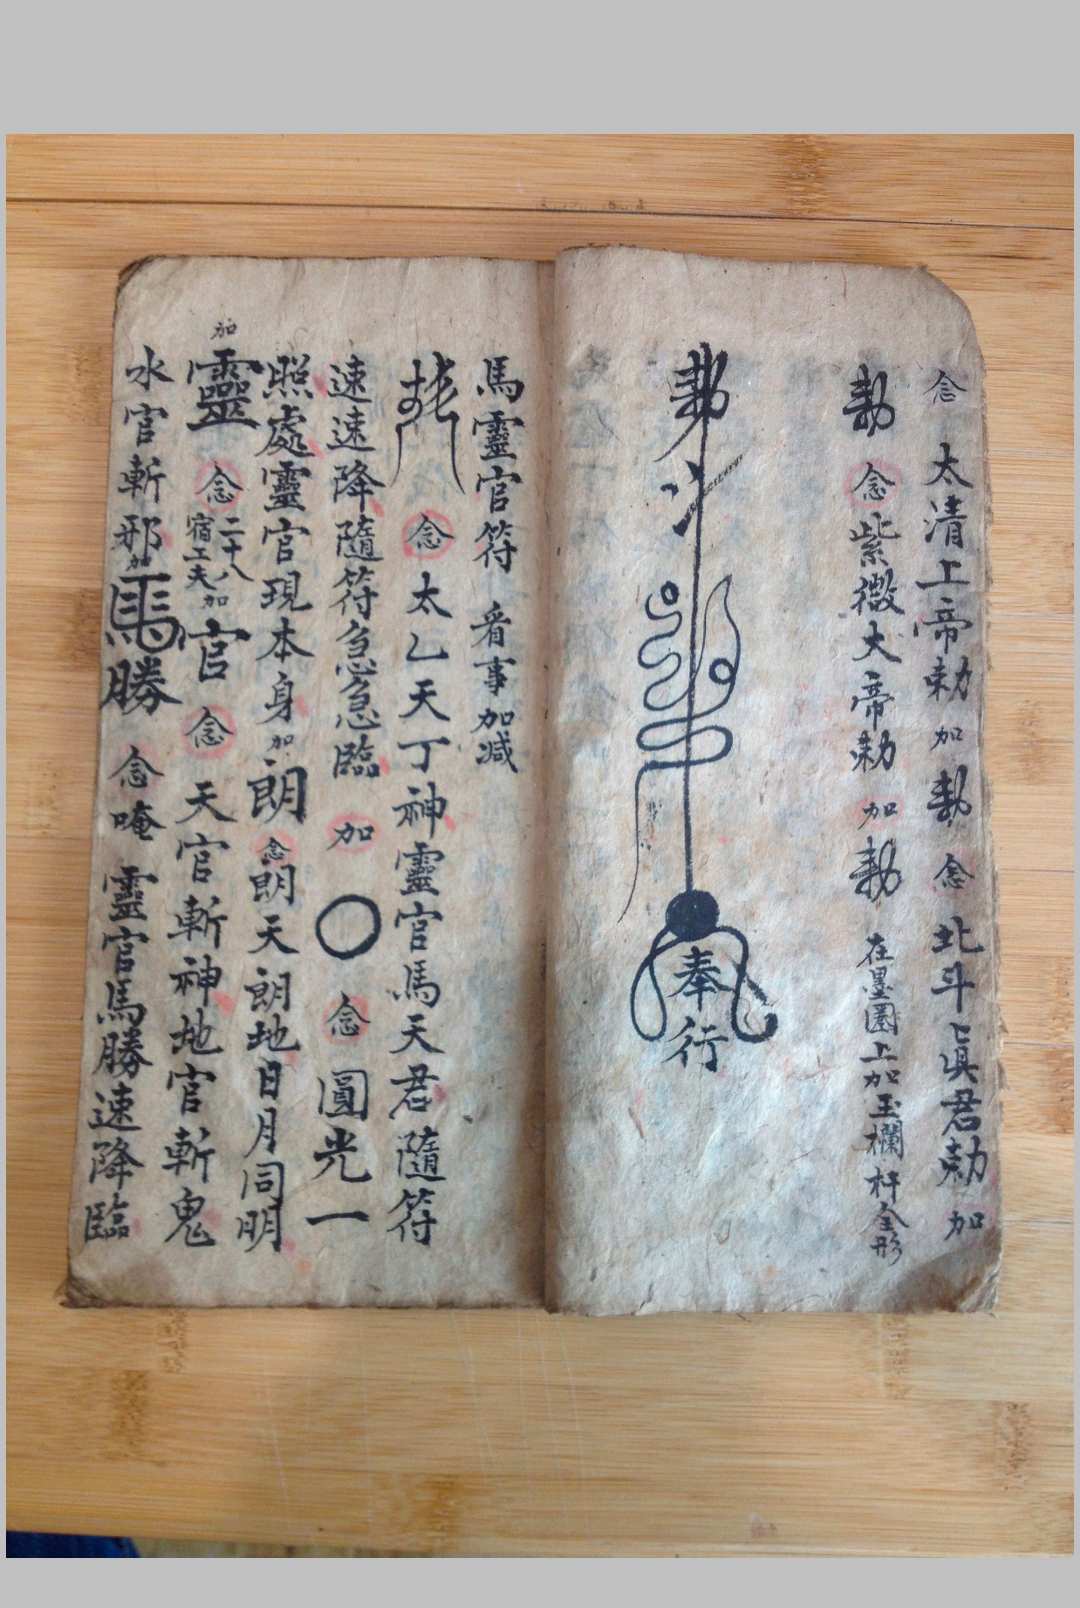 念 太清上帝勅 加 勅 念 北斗真君勅 加
勅 念 紫微大帝勅 加 勅 在墨圈上加玉欄杆全形
奉行
馬靈官符 看事加减
念 太乙天丁神靈官馬天君隨符
速速降隨符急急臨 加 〇 念 圓光一
照處靈官現本身 加 朗 念 朗天朗地日月同明
加 靈 念 二十八宿工夫 加 官 念 天官斬神地官斬鬼
水官斬邪 加 馬勝 念 唵 靈官馬勝速降臨